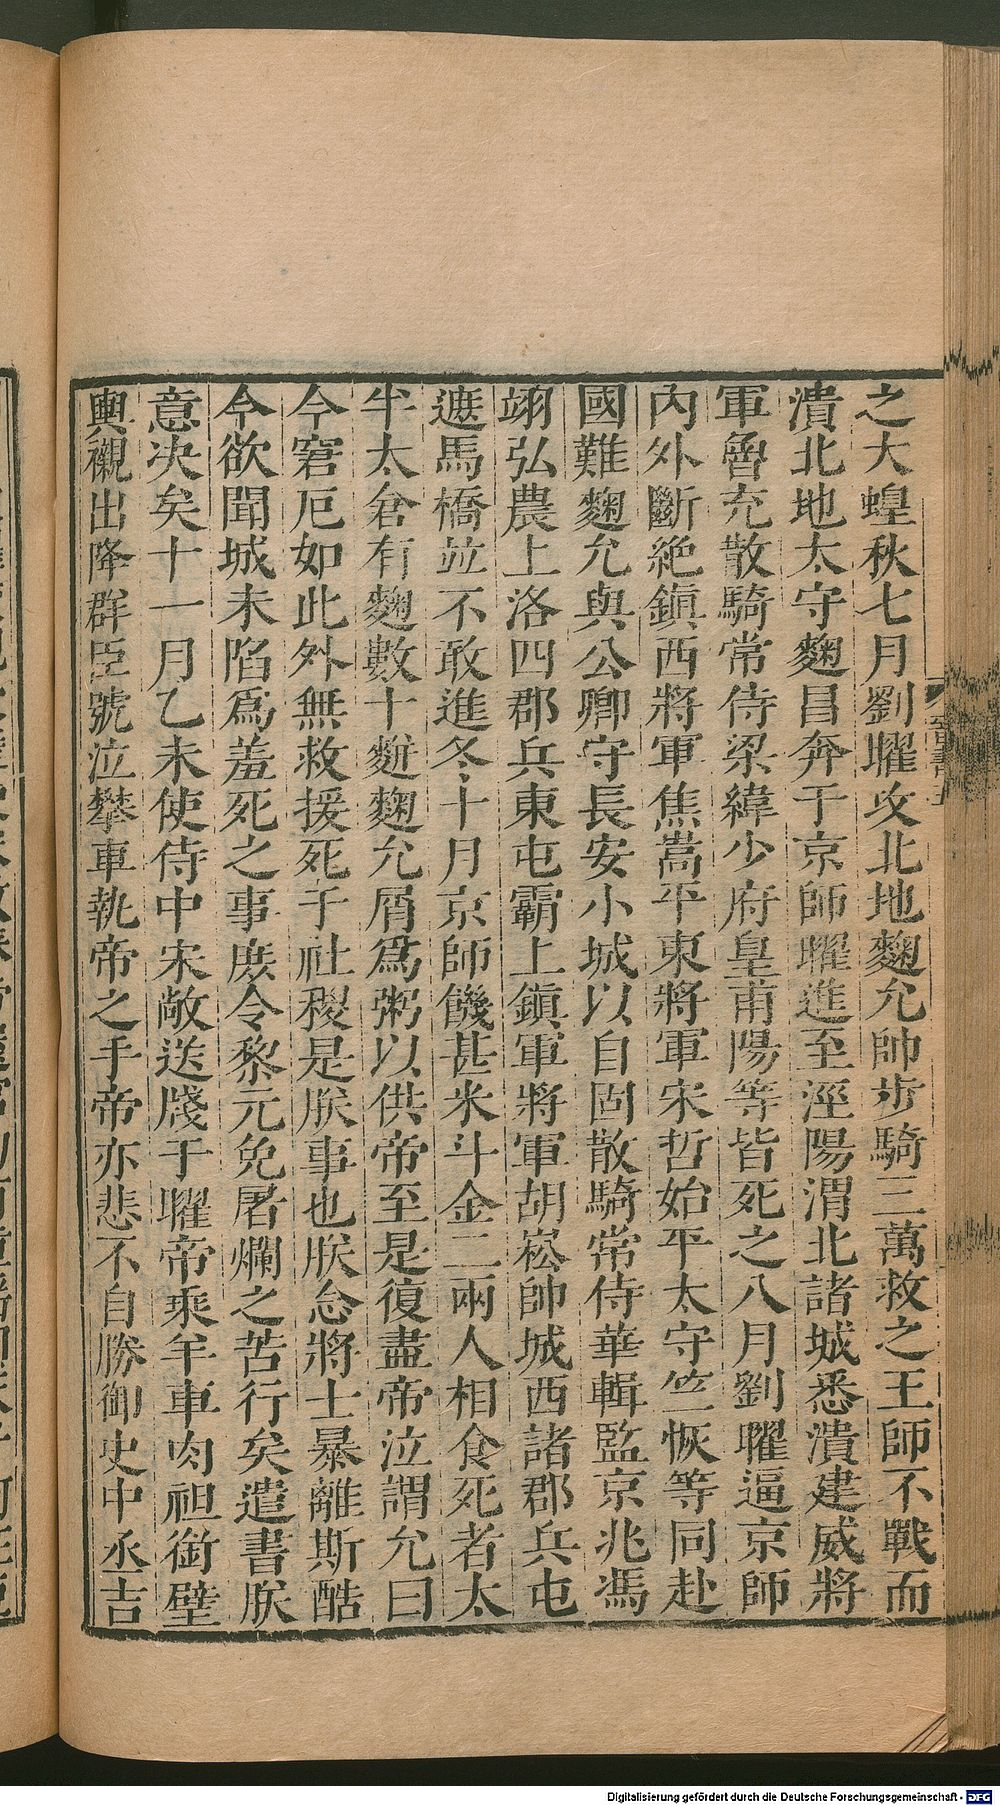 之大蝗秋七月劉曜攻北地麴允帥步騎三萬救之王師不戰而
潰北地太守麴昌奔于京師曜進至涇陽渭北諸城悉潰建威將
軍魯充散騎常侍梁緯少府皇甫陽等皆死之八月劉曜逼京師
內外斷絕鎭西將軍焦嵩平東將軍宋哲始平太守竺恢等同赴
國難麴允與公卿守長安小城以自固散騎常侍華輯監京兆馮
翊弘農上洛四郡兵東屯霸上鎭軍將軍胡崧帥城西諸郡兵屯
遮馬橋並不敢進冬十月京師饑甚米斗金二兩人相食死者太
半太倉有麴數十䴵麴允屑爲粥以供帝至是復盡帝泣謂允曰
今窘厄如此外無救援死于社稷是朕事也朕念將士暴離斯酷
今欲聞城未陷爲羞死之事庶令黎元免屠爛之苦行矣遣書朕
意決矣十一月乙未使侍中宋敞送牋于曜帝乘羊車肉袒銜璧
輿櫬出降群臣號泣攀車執帝之手帝亦悲不自勝御史中丞吉
Digitalisierung gefördert durch die Deutsche Forschungsgemeinschaft - DFG